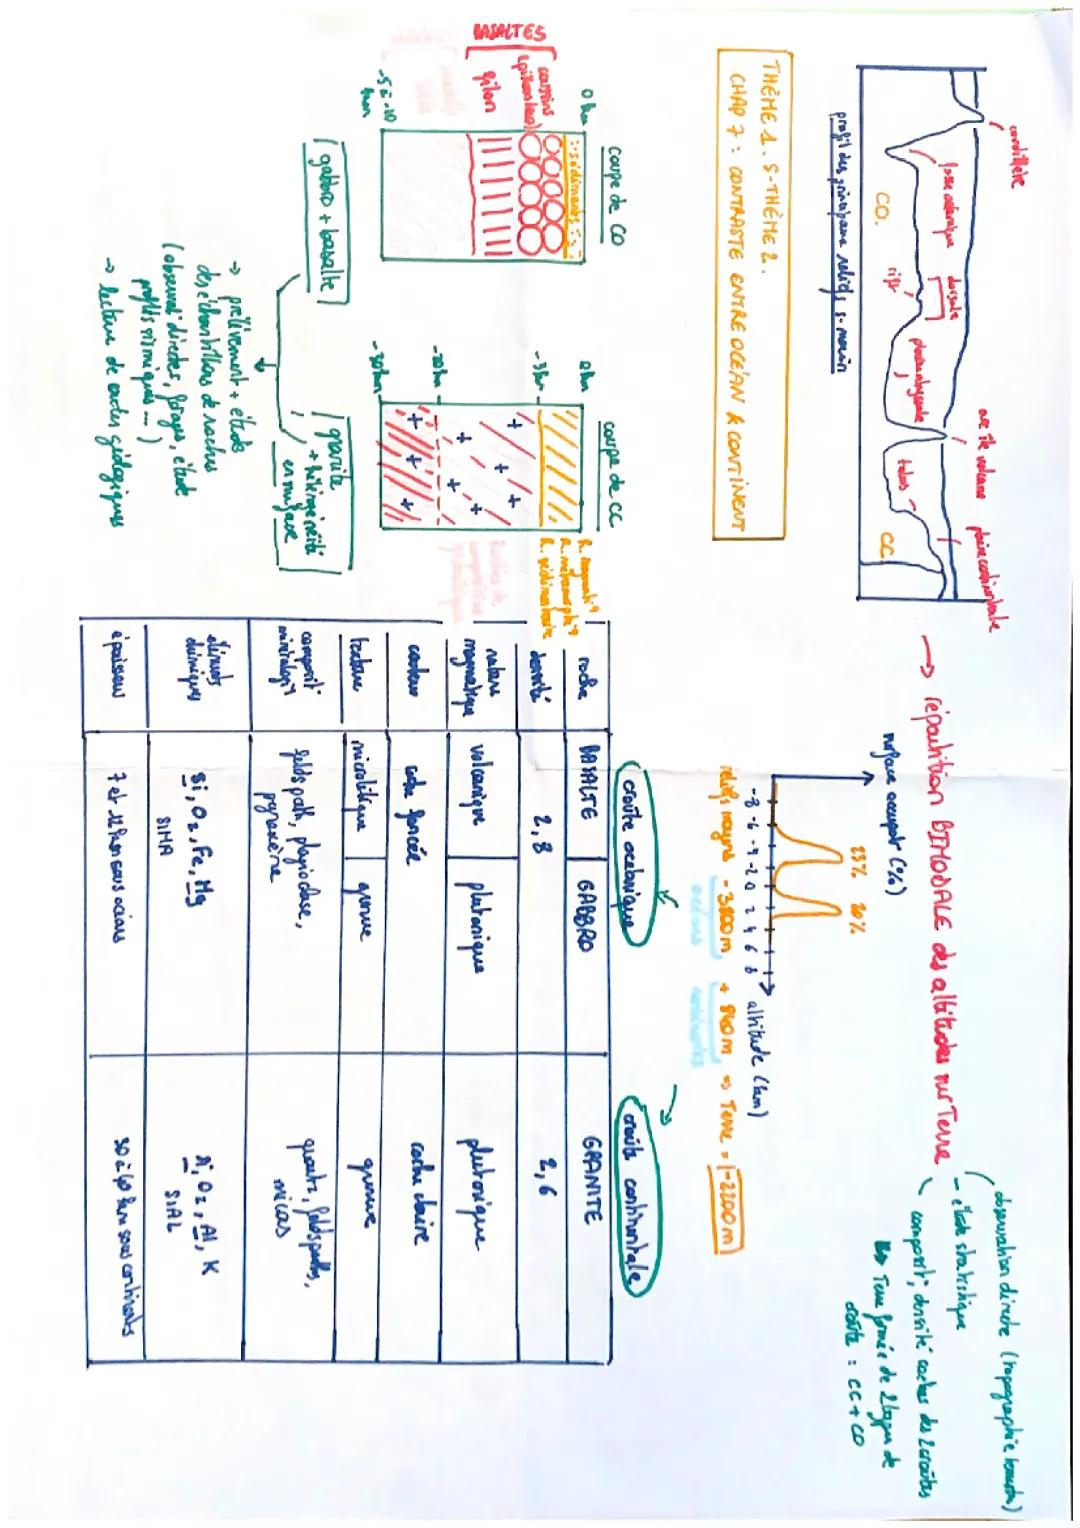 THÈME 1. S-THÈME 2.
CHAP 7 : CONTRASTE ENTRE OCÉAN & CONTINENT
cordillère
fosse océanique
dorsale
rift
plaine abyssale
arc île volcans
plaine continentale
talus
CO.
CC.
profil des principaux reliefs s-marin
→ répartition BIMODALE des altitudes sur Terre
observation directe (topographie
- étude statistique
composit°, densité roches des 2 croûtes
Terre formée de 2 types de
croûte : CC + CO
surface occupée (%)
23% 20%
-8 -6 -4 -2 0 2 4 6 8 altitude (km)
reliefs moyens -3800m + 840m ⇒ Terre = -2200m
océans continents
coupe de CO
0 km
sédiments
BASALTES
coussins
(pillow lava)
filon
-5 à -10
km
coupe de CC
0 km
-5 km
-20 km
-30 km
R. magmatiq
R. métamorphiq
R. sédimentaire
gabbro + basalte
granite
+ hétérogénéité
en surface
→ prélèvement + étude
des échantillons de roches
(observat° directes, forages, étude
profils sismiques ...)
→ lecture de cartes géologiques
croûte océanique
croûte continentale
roche BASALTE GABBRO GRANITE
densité 2,8 2,6
nature
magmatique volcanique plutonique plutonique
couleur roche foncée roche claire
texture microlitique grenue grenue
composit°
minéralogiq feldspath, plagioclase, quartz, feldspaths,
pyroxène micas
éléments
chimiques Si, O2, Fe, Mg Si, O2, Al, K
SIMA SIAL
épaisseur 7 et 12 km sous océans 30 à 40 km sous continents